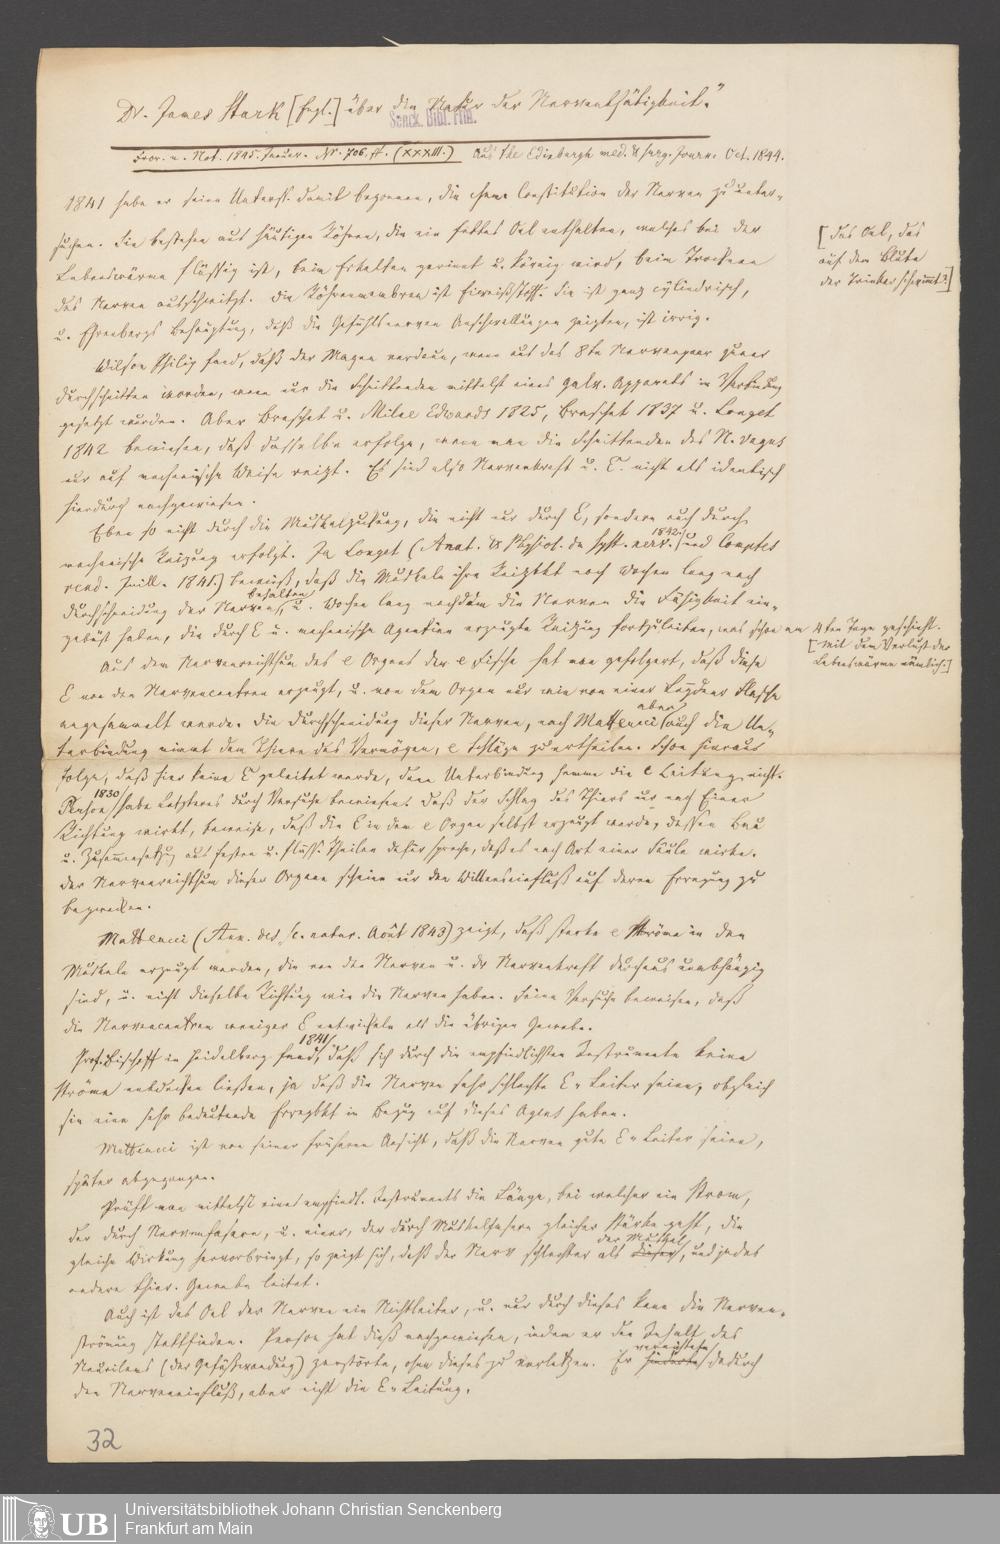 Dr. James Stark [Engl.] über die Natur der Nerventhätigkeit."
Senck. Bibl. Ffm.
Fror. n. Not. 1845. Januar. Nr. 706. ff. (XXXIII.) Aus The Edinburgh med. & surg. Journ. Oct. 1844.
1841 habe er seine Unters. damit begonnen, die chem. Constitution der Nerven zu unter-
suchen. Sie bestehen aus häutigen Röhren, die ein fettes Oel enthalten, welches bei der
[das Oel, das
auf dem Blute
der Trinker schwimmt?]
Lebenswärme flüssig ist, beim Erkalten gerinnt u. körnig wird, beim Trocknen
des Nerven ausschwitzt. Die Röhrenmembran ist Eiweißstoff. Sie ist ganz cylindrisch,
u. Ehrenbergs Behauptung, daß die Gefühlsnerven Anschwellungen zeigten, ist irrig.
Wilson Philip fand, daß der Magen verdaue, wenn auch das 8te Nervenpaar quer
durchschnitten worden, wenn nur die Schnittenden mittelst eines galv. Apparats in Verbindung
gesetzt würden. Aber Breschet u. Milne Edwards 1825, Breschet 1837 u. Longet
1842 bewiesen, daß dasselbe erfolge, wenn man die Schnittenden des N. vagus
nur auf mechanische Weise reizt. Es sind also Nervenkraft u. E. nicht als identisch
hierdurch nachgewiesen.
Eben so nicht durch die Muskelzuckung, die nicht nur durch E, sondern auch durch
mechanische Reizung erfolgt. Ja Longet (Anat. & Physiol. du syst. nerv. 1842. und Comptes
rend. Juill. 1841.) bewieß, daß die Muskeln ihre Reizbkt noch Wochen lang nach
Durchschneidung der Nerven behalten, u. Wochen lang nachdem die Nerven die Fähigkeit ein-
gebüßt haben, die durch E u. mechanische Agentien erzeugte Reizung fortzuleiten, was schon am 4ten Tage geschieht.
[Mit dem Verlust der
Lebenswärme nämlich.]
Aus dem Nervenreichthum des e Organs der e Fische hat man gefolgert, daß diese
E von den Nervencentren erzeugt, u. von dem Organ nur wie von einer Leydener Flasche
angesammelt werde. Die Durchschneidung dieser Nerven, nach Matteucci aber auch die Un-
terbindung nimmt dem Thiere das Vermögen, e Schläge zu ertheilen. Schon hieraus
folge, daß hier keine E geleitet werde, denn Unterbindung hemme die E Leitung nicht.
Person 1830 habe Letzteres durch Versuche bewiesen. Daß der Schlag des Thiers nur nach Einer
Richtung wirkt, beweise, daß die E in dem e Organ selbst erzeugt werde, dessen Bau
u. Zusammensetzung aus festen u. flüss. Theilen dafür spreche, daß es nach Art einer Säule wirke.
Der Nervenreichthum dieser Organe scheine nur den Willenseinfluß auf deren Erregung zu
bezwecken.
Matteucci (Ann. des sc. natur. Août 1843) zeigt, daß starke e Ströme in den
Muskeln erzeugt werden, die von den Nerven u. der Nervenkraft durchaus unabhängig
sind, u. nicht dieselbe Richtung wie die Nerven haben. Seine Versuche beweisen, daß
die Nervencentren weniger E entwickeln als die übrigen Gewebe.
Prof. Bischoff in Heidelberg fand 1841, daß sich durch die empfindlichsten Instrumente keine
Ströme entdecken ließen, ja daß die Nerven sehr schlechte E-Leiter seien, obgleich
sie eine sehr bedeutende Erregbkt in Bezug auf dieses Agens haben.
Matteucci ist von seiner früheren Ansicht, daß die Nerven gute E-Leiter seien,
später abgegangen.
Prüft man mittelst eines empfindl. Instruments die Länge, bei welcher ein Strom,
der durch Nervenfasern, u. einer, der durch Muskelfasern gleicher Stärke geht, die
gleiche Wirkung hervorbringt, so zeigt sich, daß der Nerv schlechter als der Muskel, und jedes
andere thier. Gewebe leitet.
Auch ist das Oel der Nerven ein Nichtleiter, u. nur durch dieses kann die Nerven-
strömung stattfinden. Person hat dieß nachgewiesen, indem er den Inhalt des
Neurilems (der Gefäßwandung) zerstörte, ohne dieses zu verletzen. Er vernichtete dadurch
den Nerveneinfluß, aber nicht die E-Leitung.
32
UB
Universitätsbibliothek Johann Christian Senckenberg
Frankfurt am Main